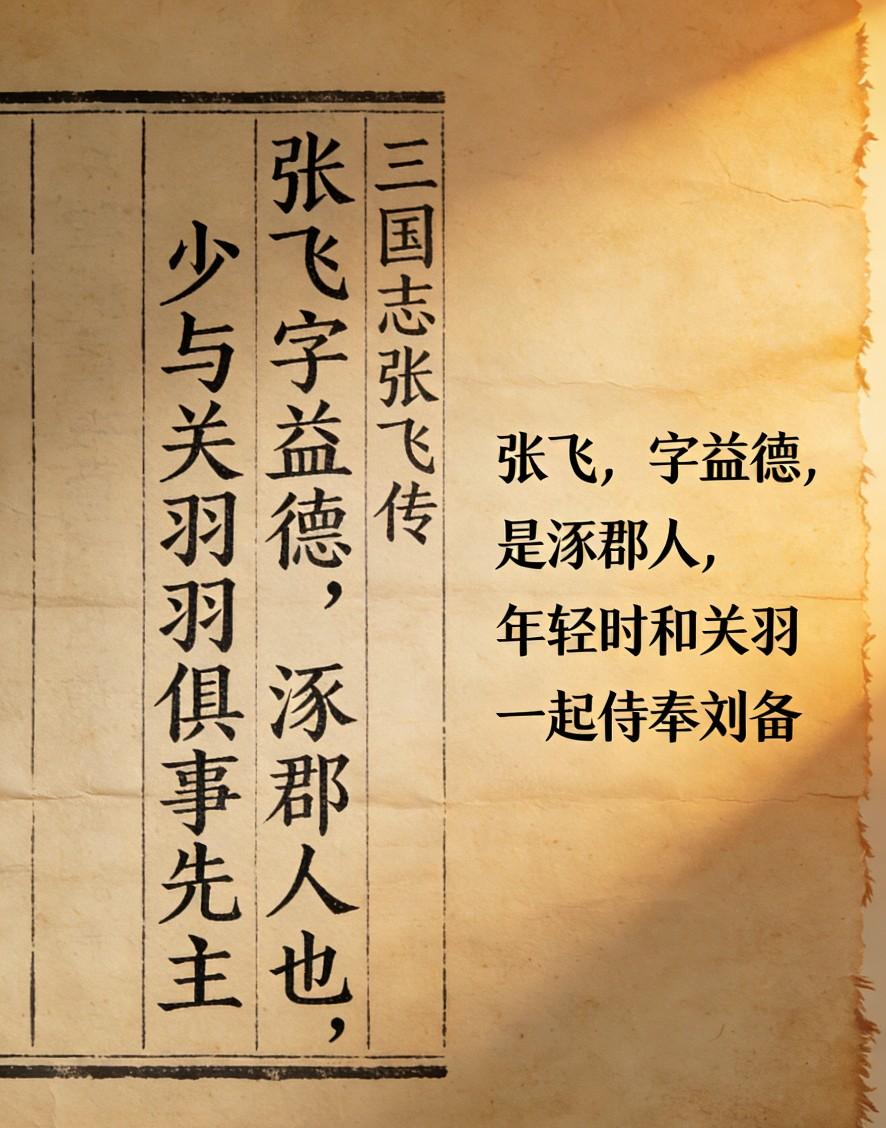 三国志张飞传
张飞字益德，涿郡人也，
少与关羽羽俱事先主
张飞，字益德，
是涿郡人，
年轻时和关羽
一起侍奉刘备